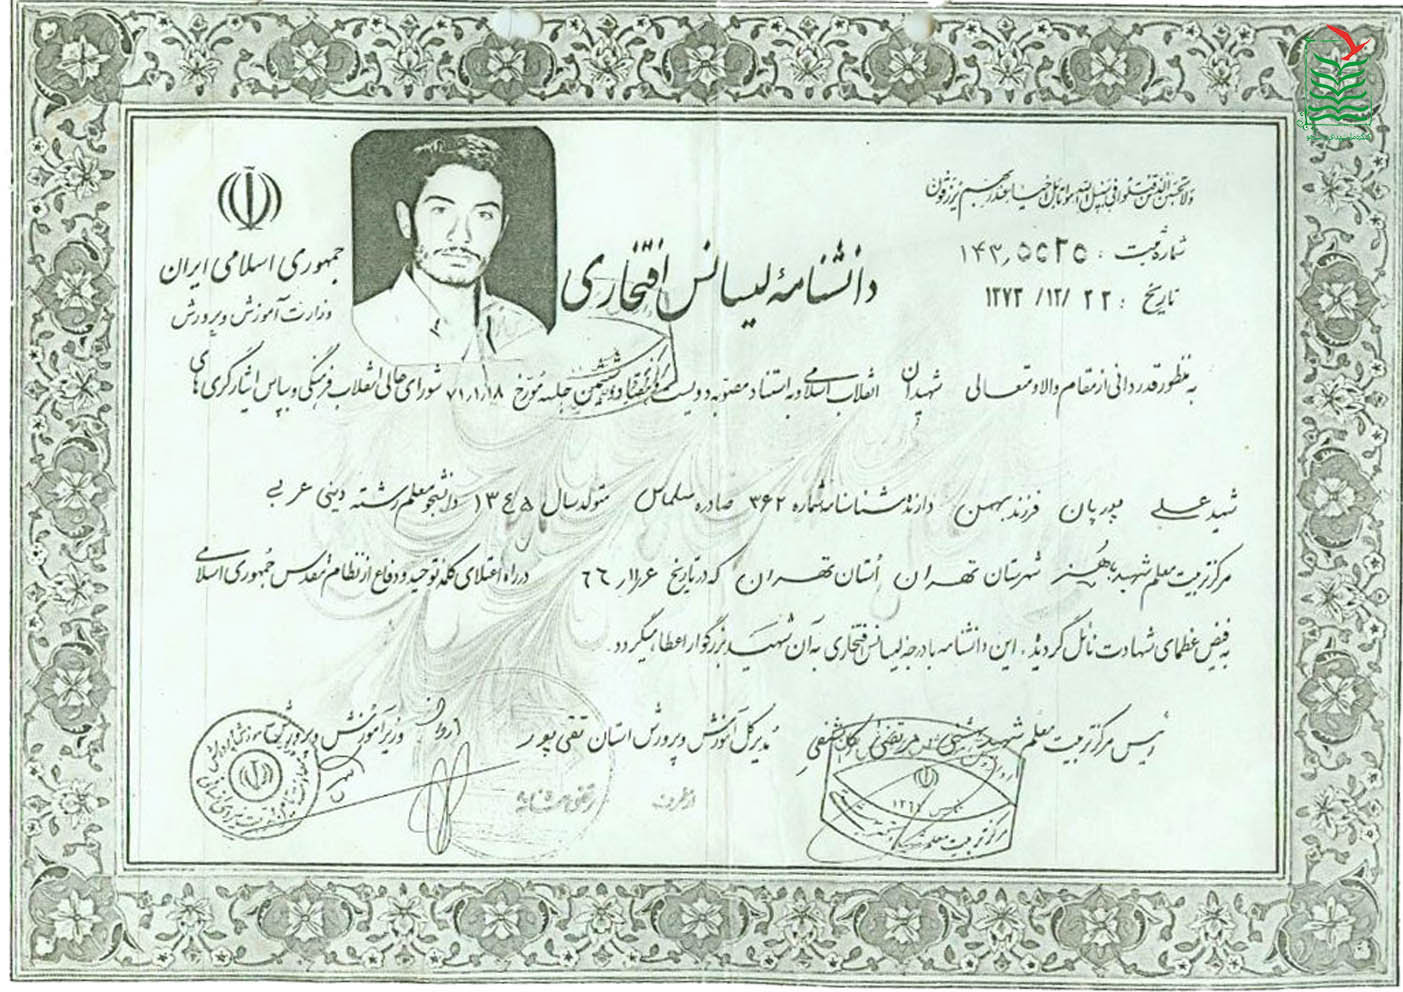 ولا تحسبن الذین قتلوا فی سبیل الله امواتا بل احیاء عند ربهم یرزقون
شماره ثبت :
تاریخ : ۱۳۷۳/۱۲/۲۲
جمهوری اسلامی ایران
وزارت آموزش و پرورش
دانشنامهٔ لیسانس افتخاری
به منظور قدردانی از مقام والا و متعالی شهیدان انقلاب اسلامی و به استناد مصوبه دویست و هفتاد و پنجمین جلسه مورخ ۷۱٫۱٫۱۸ شورای عالی انقلاب فرهنگی و بپاس ایثارگری های
شهید علی پورپان فرزند بهمن دارنده شناسنامه شماره ۳۶۲ صادره سلماس متولد سال ۱۳۴۵ دانشجو معلم رشته دینی عربی
مرکز تربیت معلم شهید باهنر شهرستان تهران استان تهران که در تاریخ در راه اعتلای کلمه توحید و دفاع از نظام مقدس جمهوری اسلامی
به فیض عظمای شهادت نائل گردیده ، این دانشنامه با درجه لیسانس افتخاری به آن شهید بزرگوار اعطا میگردد .
رئیس مرکز تربیت معلم شهید بهشتی
مدیر کل آموزش و پرورش استان تقی پور
وزیر آموزش و پرورش
از طرف
مرکز تربیت معلم